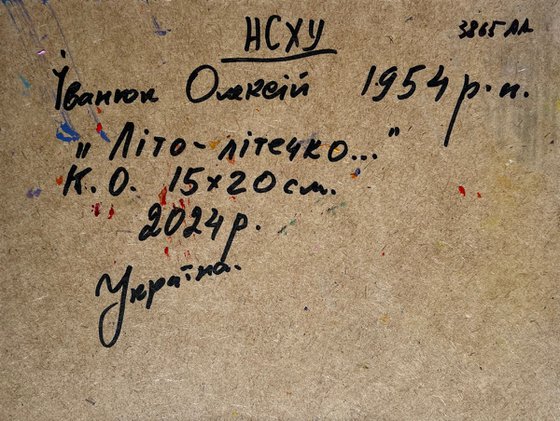 НСХУ
3865 АА
Іванюк Олексій 1954 р.н.
„Літо-літечко..."
К.О. 15х20см.
2024р.
Україна.